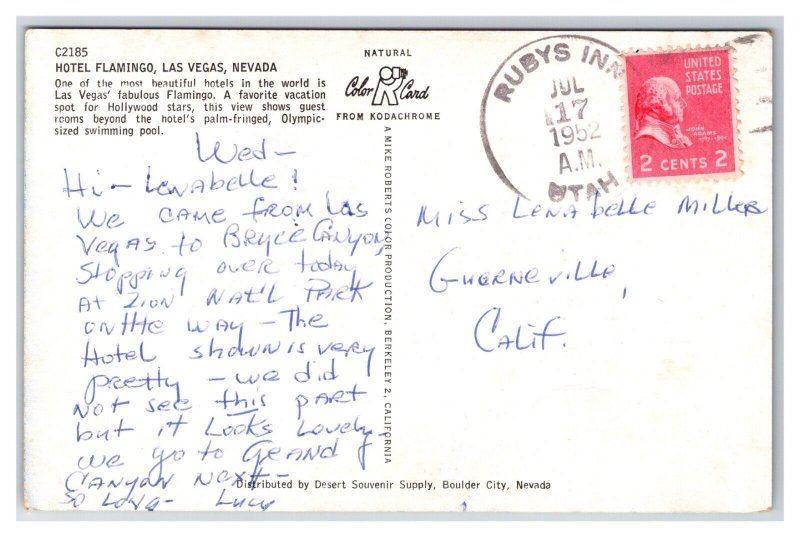 C2185
HOTEL FLAMINGO, LAS VEGAS, NEVADA
One of the most beautiful hotels in the world is
Las Vegas' fabulous Flamingo. A favorite vacation
spot for Hollywood stars, this view shows guest
rooms beyond the hotel's palm-fringed, Olympic-
sized swimming pool.
NATURAL
Color Card
FROM KODACHROME
RUBYS INN
JUL
17
1952
A.M.
UTAH
UNITED
STATES
POSTAGE
JOHN
ADAMS
2 CENTS 2
Wed-
Hi- Lenabelle!
We came from Las
Vegas to Bryce Canyon,
stopping over today
at Zion Nat'l Park
on the way - The
Hotel shown is very
pretty - we did
not see this part
but it looks lovely-
we go to Grand
Canyon next-
So Long- Lucy
A MIKE ROBERTS COLOR PRODUCTION, BERKELEY 2, CALIFORNIA
Miss Lenabelle Miller
Guerneville,
Calif.
Distributed by Desert Souvenir Supply, Boulder City, Nevada